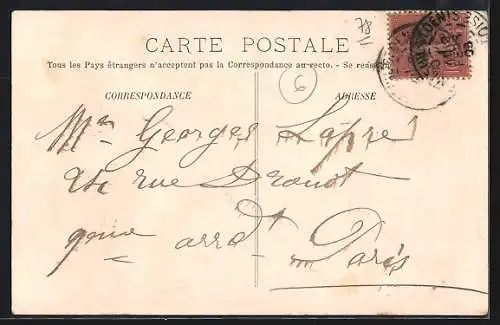 78
CARTE POSTALE
Tous les Pays étrangers n'acceptent pas la Correspondance au recto. - Se rensei
6
CORRESPONDANCE
ADRESSE
Mr Georges
rue Drouot
arrdt Paris